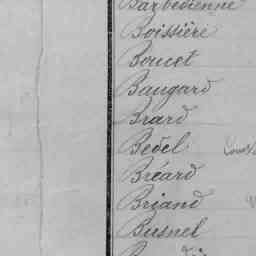 Barbedienne
Boissière
Boucet
Baugard
Biard
Bedel
Bréard
Briand
Busnel